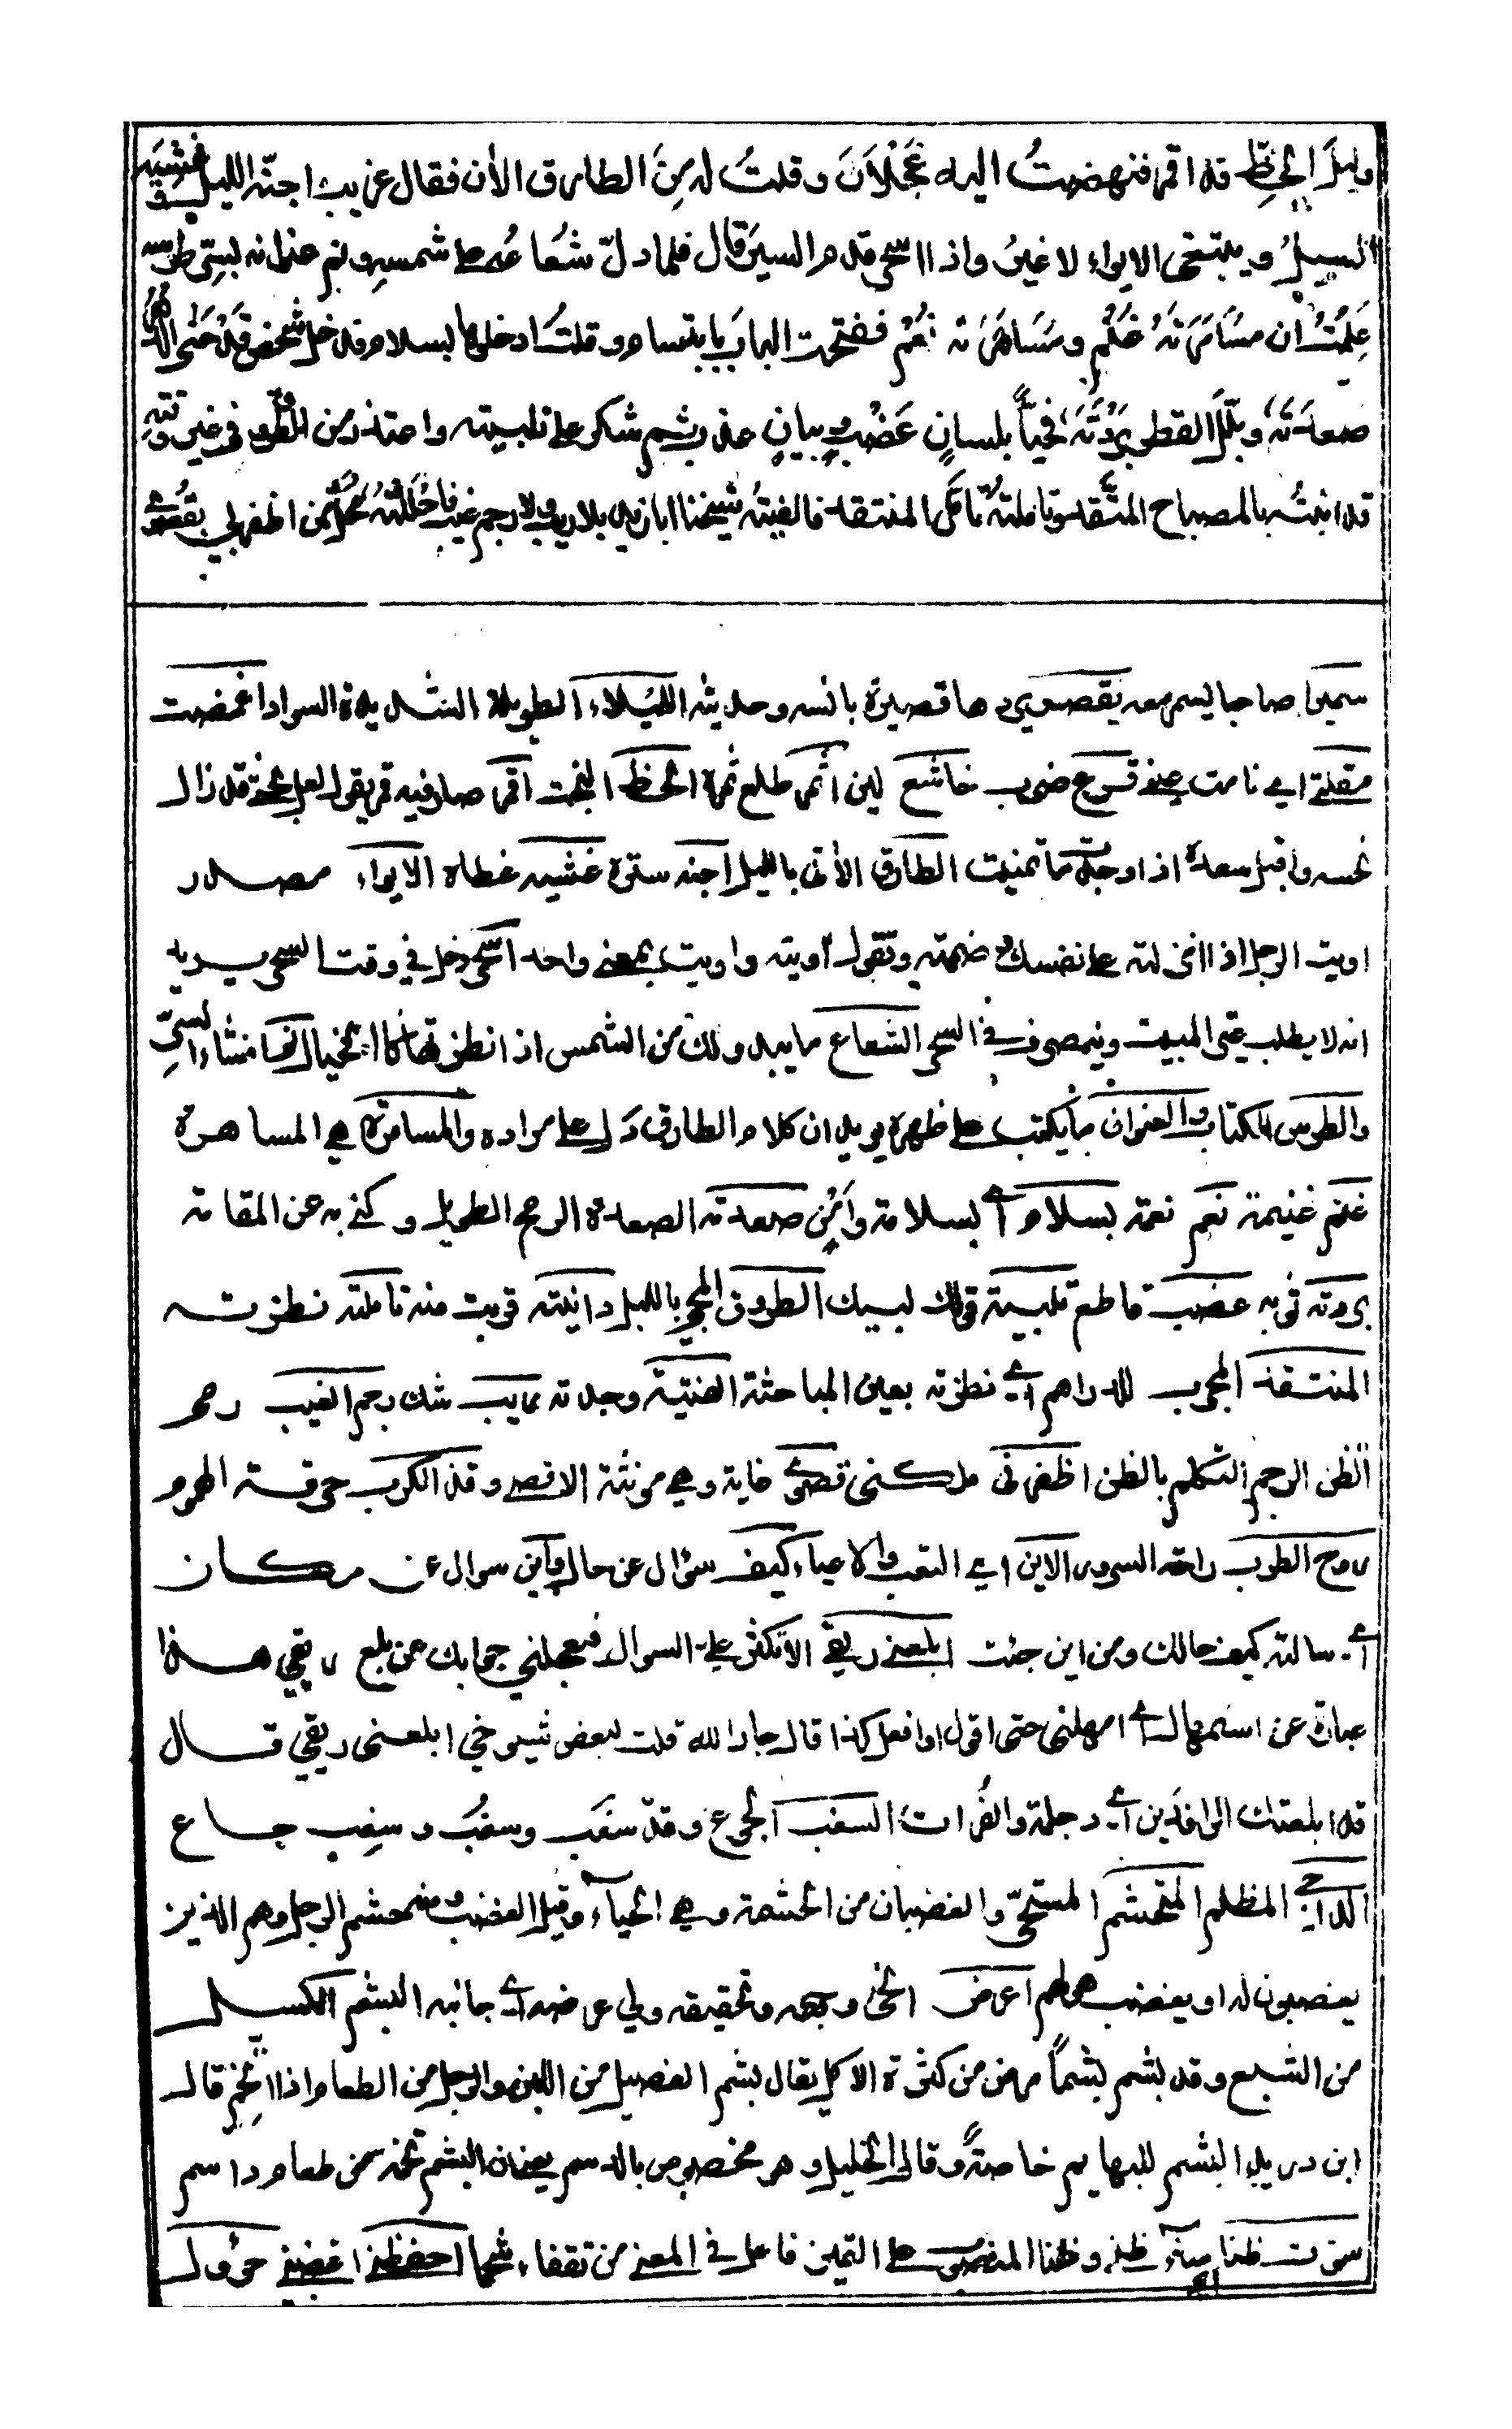 وليل الحظ قد اقمر فنهضتُ اليه عَجْلَانَ وقلتُ له مَنِ الطارق الآن فقال غريب اجنّه الليل وغشيه
السيل ويبتغى الايواء لا غيرُ واذا اسحر قدم السيرَ قال فلما دلّ شعاعُه على شمسه ونم عنوانه بسِرّ طرسه
عَلِمْتُ ان مُسَامَرَتَهُ غُنْم ومُسَاهَرَتَه نُعْم ففتحت الباب بابتسام وقلت ادخلوها بسلام فدخل شخص قد حَنَى الدهرُ
صعدَتَهُ وبلّل القطر بُرْدَتَهُ فحيّا بلسانٍ عَضْبٍ وبيانٍ عذب ثم شكر على تلبيته واعتذر من الطروق فى غير وقته
فدانيتُه بالمصباح المتّقد وتاملتُه تأمّل المنتقد فالفيتُه شيخنا ابا زيد بلا ريب ولا رجم غيب فاحْلَلْتُهُ مَحَلَّ من اظفرنى بقُصْوَى
سميرا صاحبا يسمر معه يقصر يردها قصيرة بانسه وحديثه الليلاء الطويلة الشديدة السواد اغمضت
مقلتى اى نامت عينى قرع ضرب خاشع لين اثمر طلع ثمره الحظ البخت اقمر صار فيه قمر يقول لعل نحسه قد زال
نحسه واقبل سعده اذا وجدت ما تمنيت الطارق الاتى بالليل اجنه ستره غشيه غطاه الايواء مصدر
اويت الرجل اذا انزلته على نفسك وضممته وتقول آويته واويت بمعنى واحد اسحر دخل فى وقت السحر يريد
انه لا يطلب غير المبيت وينصرف فى السحر الشعاع ما يبدو لك من الشمس اذا نظرتها كانه الخيال نم افشاء السِرّ
والطرس الكتاب والعنوان ما يكتب على ظهره يريد ان كلام الطارق دَل على مراده والمسامرة هى المساهرة
غنم غنيمة نعم نعمة بسلام اى بسلامة وامن صعدته الصعدة الرمح الطويل وكنى به عن القامة
بردته ثوبه عضب قاطع تلبيته قولك لبيك الطروق المجئ بالليل دانيته قربت منه تاملته نظرته
المنتقد المجرب للدراهم اى نظرته بعين المباحثة الفيته وجدته ريب شك رجم الغيب رجم
الظن الرجم التكلم بالظن اظفرنى ملكنى قصوى غاية وهى مونثة الاقصى وقذ الكرب حرقة الهموم
روح الطرب راحة السرور الاين اى التعب والاعياء كيف سؤال عن حال واين سوال عن مكان
اى سالته كيف حالك ومن اين جئت ابلعنى ريقى الا تكثر علىّ السوال فيعجلنى جوابك عن بلع ريقى هذا
عبارة عن استمهال اى امهلنى حتى اقول او افعل كذا قال جار الله قلت لبعض شيوخى ابلعنى ريقى قال
قد ابلعتك الرافدين اى دجلة والفرات السغب الجوع وقد سغَب وسغُب وسغِب جاع
الداجى المظلم المحتشم المستحى والغضبان من الحشمة وهى الحياء وقيل الغضب ومنه حشم الرجل وهم الذين
يغضبون له او يغضب هو لهم اعرض الخ وجهه وتحقيقه ولى عرضه اى جانبه البشم الكسل
من الشبع وقد بشم بشماً مرض من كثرة الاكل يقال بشم الفصيل من اللبن والرجل من الطعام اذا اتخم قال
ابن دريد البشم للبهايم خاصةً وقال الخليل وهو مخصوص بالدسم يعنى ان البشم تخمة من طعام دسم
سوت ظنا سيّء ظنى وظنا المنصوب على التمييز فاعل فى المعنى احفظنى اغضبنى حوول